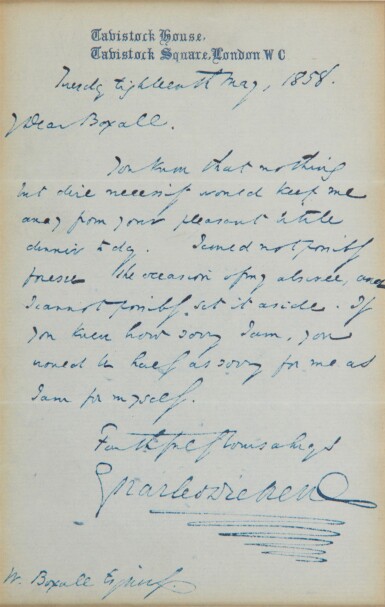 Tavistock House,
Tavistock Square, London W C
Tuesday Eighteenth May, 1858.
My Dear Boxall.
You know that nothing
but dire necessity would keep me
away from your pleasant little
dinner today. I could not possibly
foresee the occasion of my absence, and
I cannot possibly set it aside. If
you knew how sorry I am, you
would be half as sorry for me as
I am for myself.
Faithfully Yours always
Charles Dickens
W. Boxall Esquire.